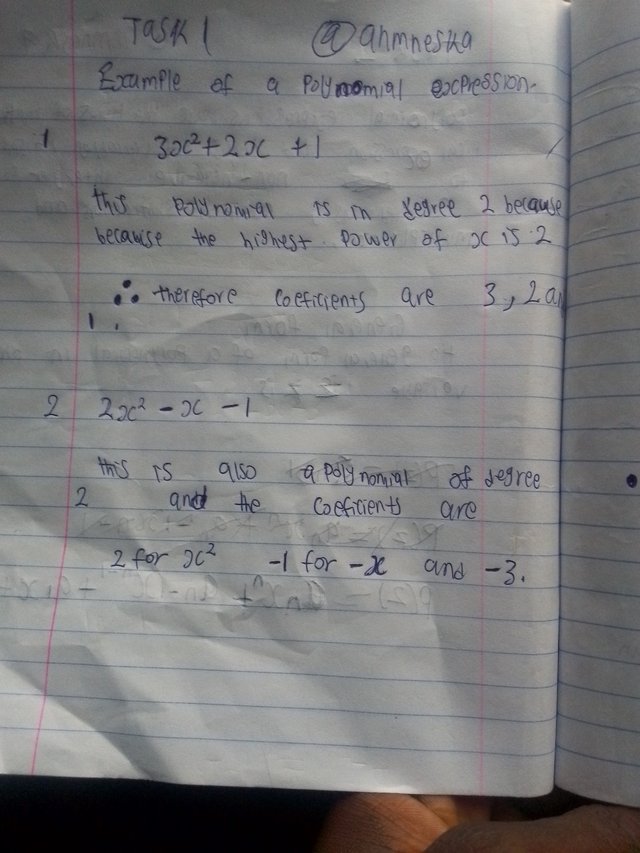 Task 1 @ahmneska
Example of a polynomial expression.
1 3x² + 2x + 1
this polynomial is in degree 2 because
because the highest power of x is 2
∴ therefore coeficients are 3, 2 an
1.
2 2x² - x - 1
this is also a polynomial of degree
2 and the coeficients are
2 for x² -1 for -x and -3.